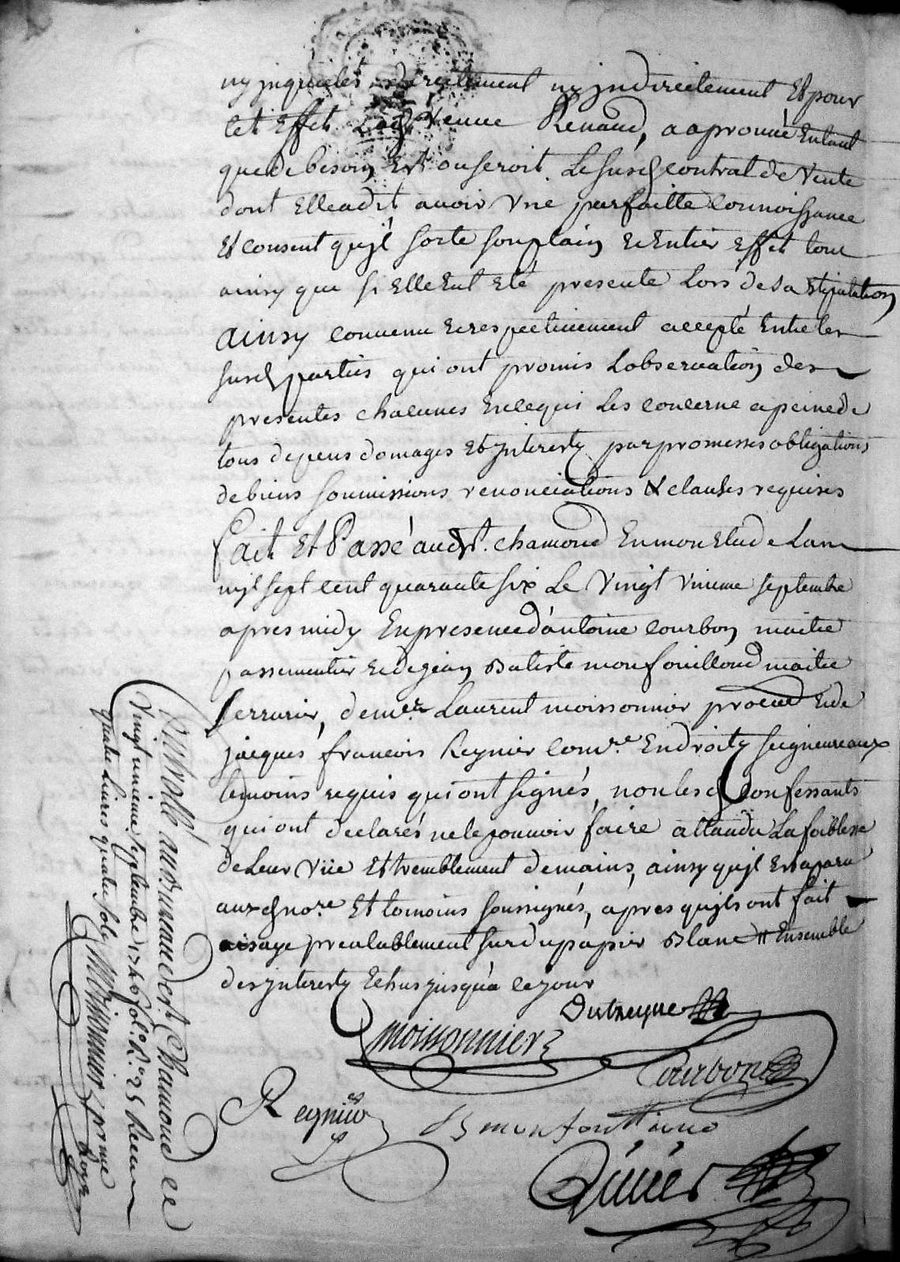 ny jnquietés directement ny jndirectement Et pour
cet Effet veuve Renaud, a aprouvé Entant
que de besoin Est ou seroit. Le susd contrat de vente
dont Elle a dit avoir vne parfaitte connoissance
Et consent qu'jl sorte son plain Et Entier Effet tout
ainsy que si Elle Eut Eté presente Lors de sa stipulation
ainsy convenu Et respectivement accepté Entre les
susd parties qui ont promis L'observation des
presentes chacunes En ce qui les concerne a peine de
tous depens domages Et jnterests par promesses obligations
de biens soumissions renonciations & clauses requises
fait Et Passé aud St. chamond En mon Etude Lan
mjl sept cent quarante six Le vingt vnieme septembre
apres midy En presence d'antoine Courbon maitre
passementier Et de jean Batiste monfouilloud maitre
serrurier, de mer Laurent moissonnier procur Et de
jacques francois Reynier comre. En droits seigneureaux
temoins requis qui ont signés, non les d confessants
qui ont declarés ne le pouvoir faire attandu La foiblesse
de Leur vüe Et tremblement de mains, ainsy qu'jl Est aparu
aux d nore Et temoins soussignés, apres qu'jls ont fait
essaye prealablement sur du papier Blanc # Ensemble
des jnterests Echus jusqu'a ce jour
Dutreyue
moissonnier
Courbon
Reynier
B monfouilloud
vingt unieme septembre 1746 fol. Ro. 25 Receu
quatre Livres quatre sols